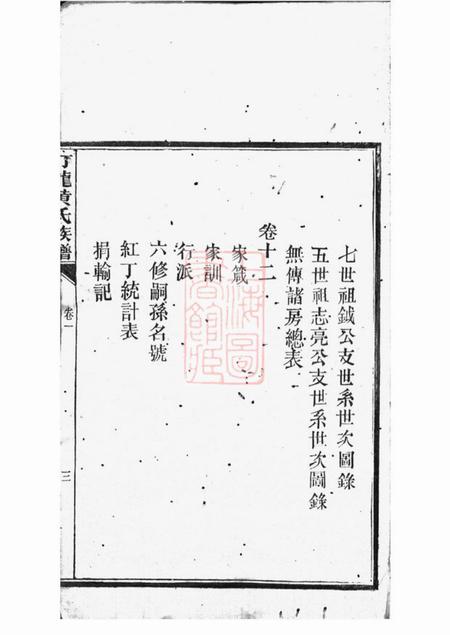 七世祖鉞公支世系世次圖錄
五世祖志亮公支世系世次圖錄
無傳諸房總表
卷十二
家箴
家訓
行派
六修嗣孫名號
紅丁統計表
捐輸記
龍黃氏族譜
卷一
三
上海圖書館藏